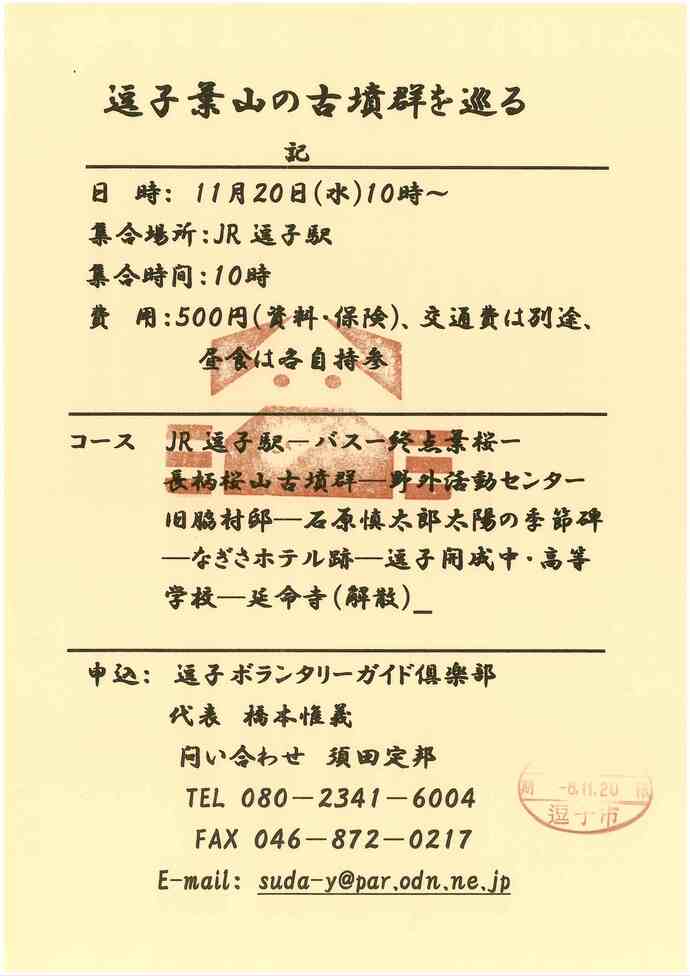 逗子葉山の古墳群を巡る
記
日 時： 11月20日(水)10時～
集合場所：JR 逗子駅
集合時間：10時
費 用：500円(資料・保険)、交通費は別途、
昼食は各自持参
コース JR 逗子駅―バス―終点葉桜―
長柄桜山古墳群―野外活動センター
旧脇村邸―石原慎太郎太陽の季節碑
―なぎさホテル跡―逗子開成中・高等
学校―延命寺(解散)_
申込： 逗子ボランタリーガイド倶楽部
代表 橋本惟義
問い合わせ 須田定邦
TEL 080－2341－6004
FAX 046－872－0217
E-mail: suda-y@par.odn.ne.jp
期 -6.11.20 限
逗子市